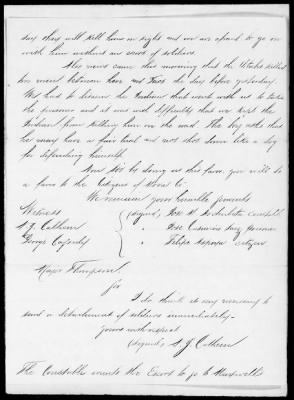 say they will kill him on sight and we are afraid to go on
with him without an escort of soldiers.
Also news came this morning that the Utahs killed
two men between here and Taos the day before yesterday.
We had to disarm the Indians that went with us to take
the prisoner and it was with difficulty that we kept the
Indians from killing him on the road. The boy asks that
he may have a fair trial and not shot down like a dog
for defending himself.
Now Sir by doing us this favor you will do
a favor to the Citizens of Mora Co.
We remain your humble servants
Witness
A. J. Calhoun
George
(signed) Jose
" Jose
" Felipe citizen
Major Thompson
Sir
I do think it very necessary to
send a detachment of soldiers immediately.
Yours with respect
(signed) A. J. Calhoun
The Constable wants the Escort to go to Maxwell's